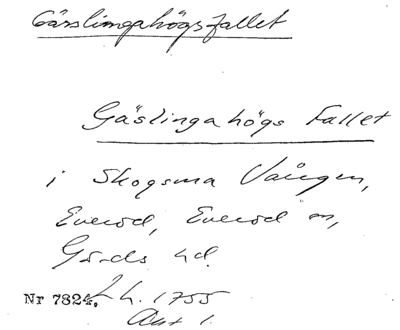 Gässlingahögsfallet
Gäslinga högs Fallet
i Skogsma Vången,
Everöd, Everöd sn,
Gärds hd.
Nr 7824. L h. 1755
Akt 1.